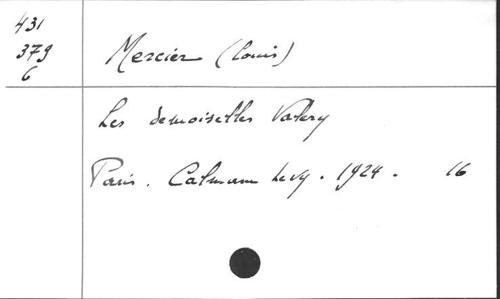 431
379
6
Mercier (Louis)
Les demoiselles Valery
Paris. Calmann Levy. 1924. 16